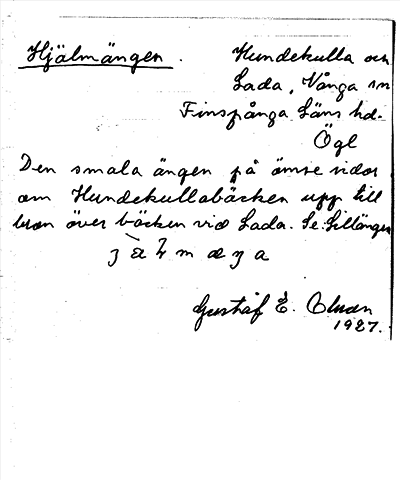 Hjälmängen. Hundekulla och
Lada, Vånga sn
Finspånga Läns hd.
Ögl
Den smala ängen på ömse sidor
om Hundekullabäcken upp till
bron över bäcken vid Lada. Se. Lillängen
Gustaf E.
1927.